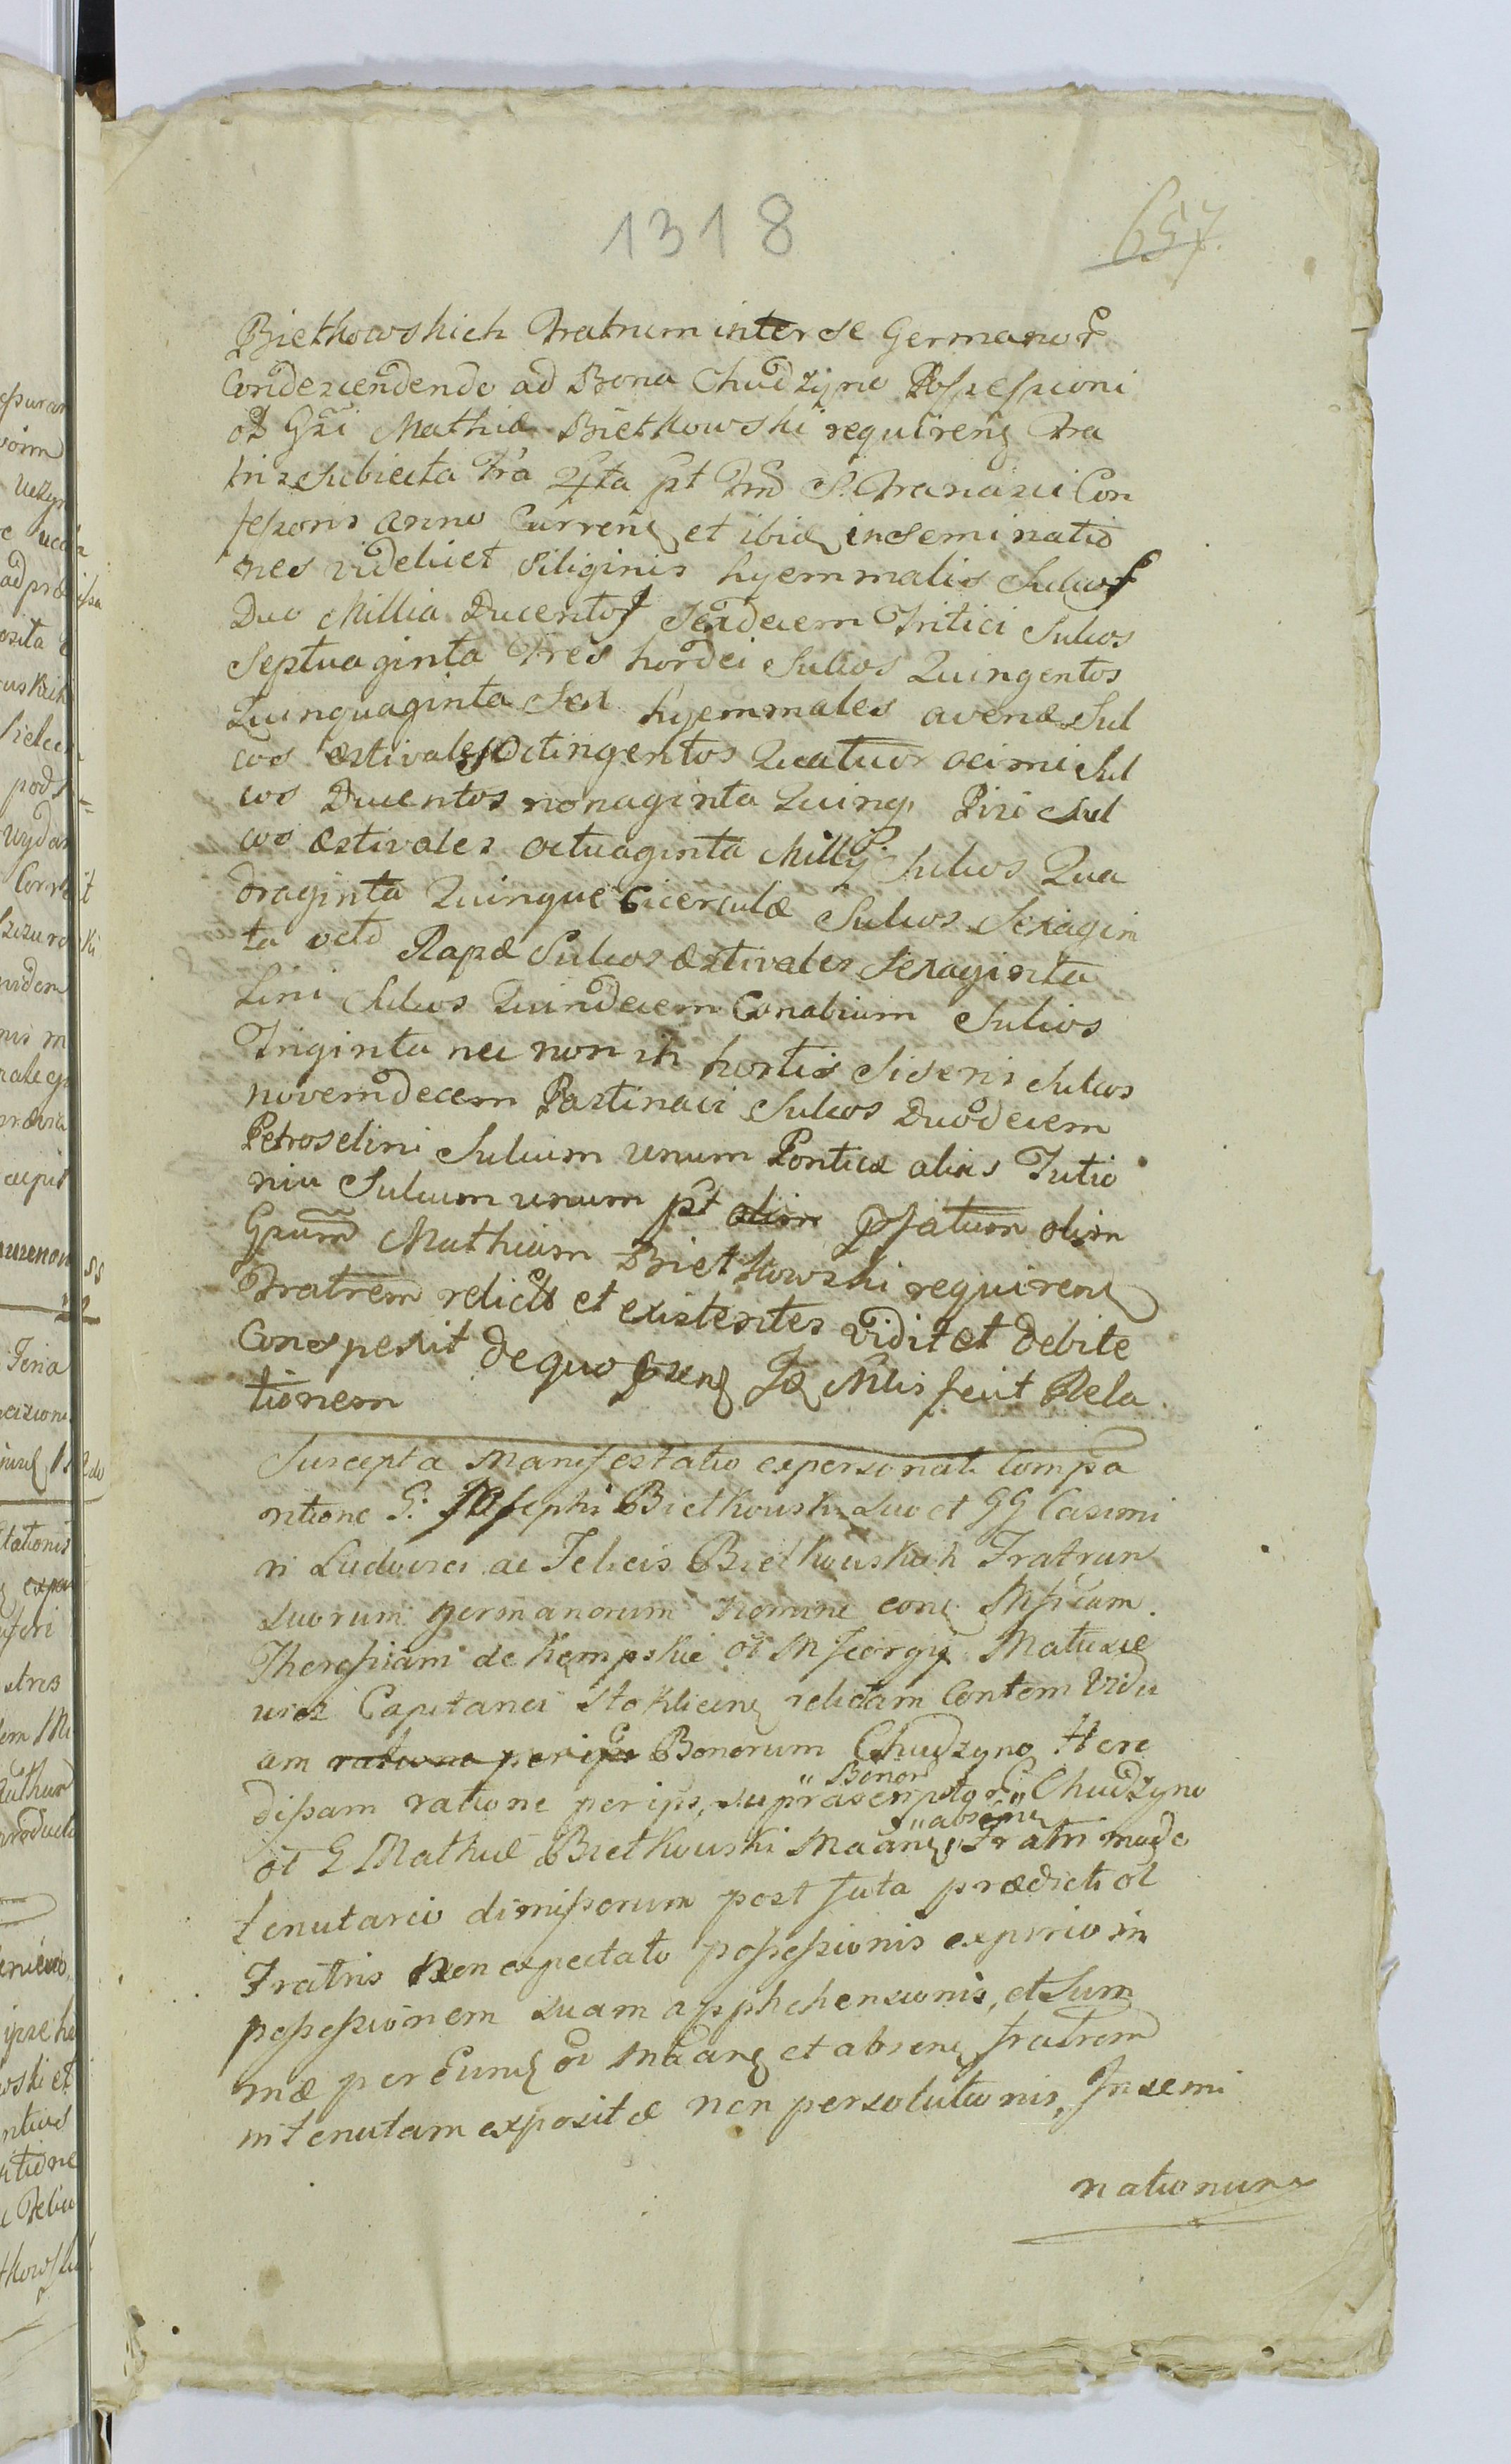 1318
657.
Biethowskich Fratrum inter se Germanor
Condescendendo ad Bona Chudzyno Possessioni
ol Gsi Mathiæ Biethowski requirens Fra
tris subiecta Fra 4ta pt Fm S. Francisci Con
fessoris anno Currens et ibid inseminatio
nes videlicet siliginis hyemmalis Sulcos
Duo Millia Ducentos Sexdecem Tritici Sulcos
Septuaginta Tres hordei Sulcos Quingentos
Quinquaginta Sex hyemmales avenæ Sul
cos æstivales Octingentos Quatuor ocimi Sul
cos Ducentos nonaginta Quinq Pisi Sul
cos æstivales octuaginta Millij Sulcos Qua
draginta Quinque Cicerculæ Sulcos Sexagin
ta octo Rapæ Sulcos æstivales Sexaginta
Lini Sulcos Quindecem Canabium Sulcos
Triginta nec non in hortis Siseris Sulcos
novemdecem Pastinaci Sulcos Duodecem
Petroselini Sulcum unum Ponticæ alias Tutio
niu Sulcum unum pt olim pfatum olim
Gsum Mathiam Biethowski requirens
Fratrem relicts et existentes vidit et debite
Conspexit de quo psens Id Mlis fecit Rela
tionem
Suscepta Manifestatio ex personali Compa
ritione G. Josephi Biethowski suo et GG Casimi
ri Ludovici ac Felicis Biethowskich Fratrum
suorum germanorum nomine con Mficam
Theressiam de Kempskie ol M Georgy Matusie
wicz Capitanei Stokliens relictam Contem Vidu
am ratione per ips Bonorum Chudzyno Here
dissam ratione per ips, suprascriptor "Bonor" Chudzyno
ol G Mathiæ Biethowski Maans "absens" Fratri modo
tenutario dimissorum post fata prædicti ol
Fratris Non expectato possessionis expirio in
possessionem suam apphehensionis, et Sum
mæ per Eund ol Maans et absens fratrem
in tenutam expositæ non persolutionis, Insemi
nationum